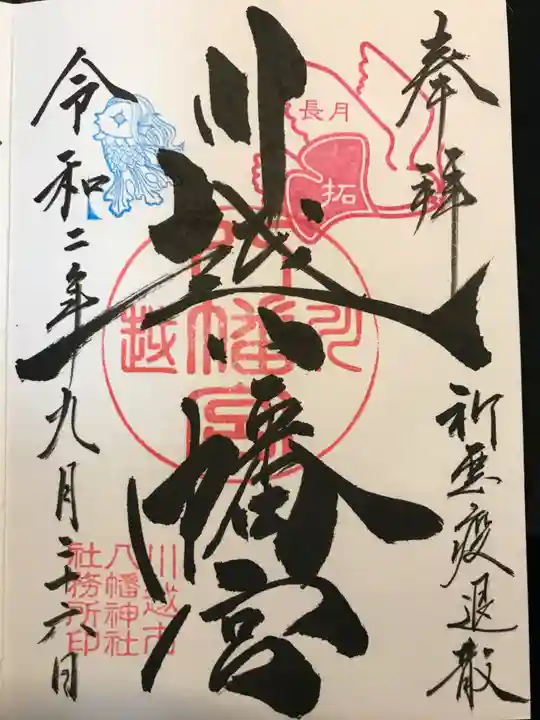 奉拝
祈悪疫退散
長月
拓
川越八幡宮
川
越
八幡宮
令和二年九月二十六日
川越市
八幡神社
社務所印